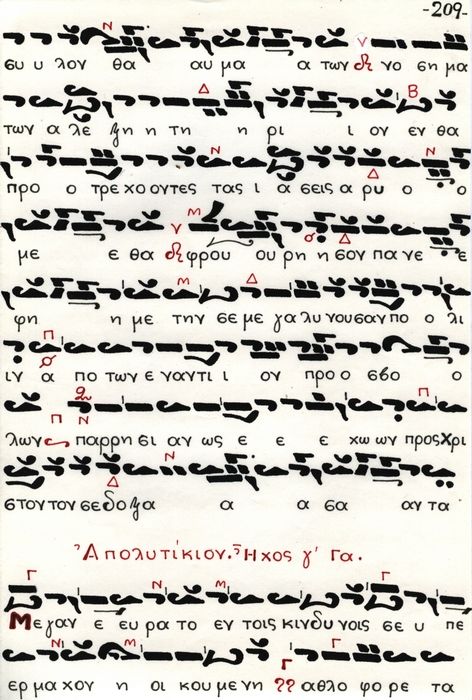 -209-
ευ υ λον θα αυ μα α των νο ση μα
των α λε ξη η τη η ρι ι ον εν θα
προ ο τρε χο ον τες τας ι α σεις α ρυ ο ο
με ε θα φρου ου ρη η σον πα νε ε
φη η με την σε με γα λυ νου σαν πο ο λι
ιν α πο των ε ναν τι ι ον προ ο σβο ο
λων παρ ρη σι αν ως ε ε ε χω ων προς Χρι
στον τον σε δο ξα α α σα αν τα
Ἀπολυτίκιον. Ἦχος γ΄ Γα.
Με γαν ε ευ ρα το εν τοις κιν δυ νοις σε υ πε
ερ μα χον η οι κου με νη αθλο φο ρε τα